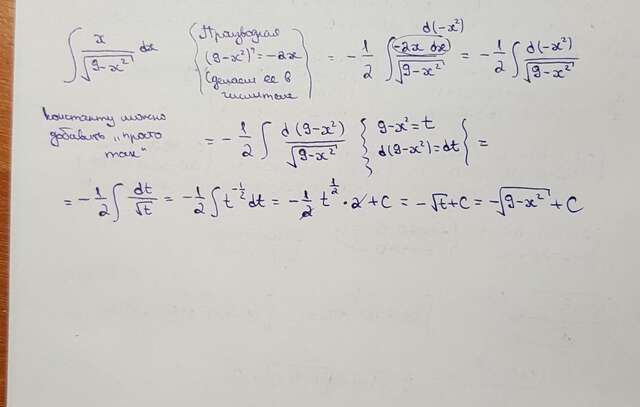 ∫ x/√(9-x²) dx { Производная (9-x²)' = -2x Сделаем её в числителе } = -1/2 ∫ (-2x dx)/√(9-x²) = -1/2 ∫ d(-x²)/√(9-x²)
d(-x²)
Константу можно добавить „просто так" = -1/2 ∫ d(9-x²)/√(9-x²) { 9-x² = t d(9-x²) = dt } =
= -1/2 ∫ dt/√t = -1/2 ∫ t^(-1/2) dt = -1/2 t^(1/2) · 2 + C = -√t + C = -√(9-x²) + C